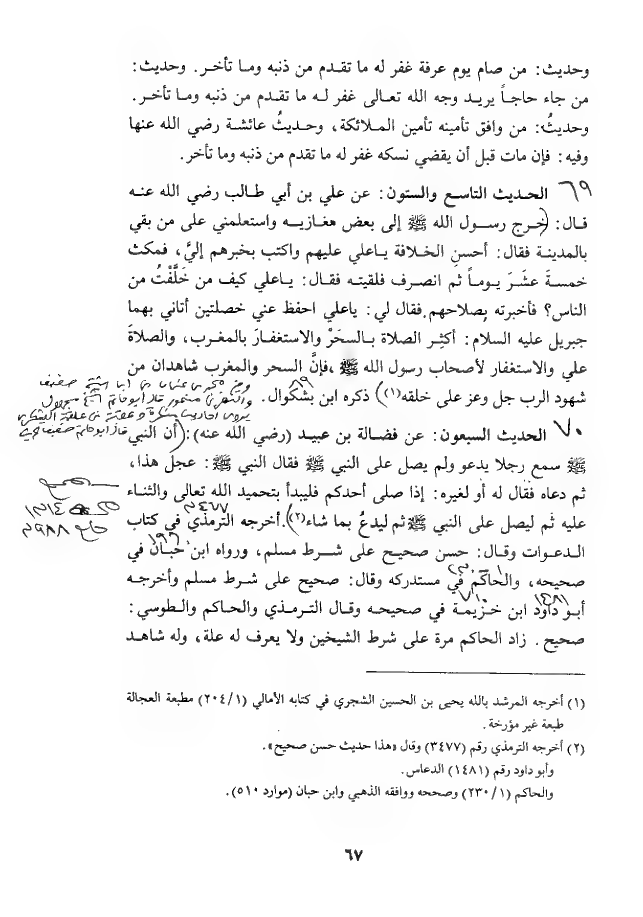 وحديث: من صام يوم عرفة غفر له ما تقدم من ذنبه وما تأخر. وحديث:
من جاء حاجاً يريد وجه الله تعالى غفر له ما تقدم من ذنبه وما تأخر.
وحديثُ: من وافق تأمينه تأمين الملائكة، وحديثُ عائشة رضي الله عنها
وفيه: فإن مات قبل أن يقضي نسكه غفر له ما تقدم من ذنبه وما تأخر.
٦٩ الحديث التاسع والستون: عن علي بن أبي طالب رضي الله عنه
قال: (خرج رسول الله ﷺ إلى بعض مغازيه واستعلمني على من بقي
بالمدينة فقال: أحسنِ الخلافة ياعلي عليهم واكتب بخبرهم إليَّ، فمكث
خمسةَ عشَرَ يوماً ثم انصرف فلقيته فقال: ياعلي كيف من خَلَّفْتُ من
الناس؟ فأخبرته بصلاحهم فقال لي: ياعلي احفظ عني خصلتين أتاني بهما
جبريل عليه السلام: أكثِر الصلاة بالسحَرْ والاستغفارَ بالمغرب، والصلاةَ
علي والاستغفار لأصحاب رسول الله ﷺ، فإنَّ السحر والمغرب شاهدان من
شهود الرب جل وعز على خلقه(١)) ذكره ابن بشكوال. ٨٩
٧٠ الحديث السبعون: عن فضالة بن عبيد (رضي الله عنه): (أن النبي
ﷺ سمع رجلا يدعو ولم يصل على النبي ﷺ فقال النبي ﷺ: عجل هذا،
ثم دعاه فقال له أو لغيره: إذا صلى أحدكم فليبدأ بتحميد الله تعالى والثناء
عليه ثم ليصل على النبي ﷺ ثم ليدعُ بما شاء(٢)). أخرجه الترمذي في كتاب
الدعوات وقال: حسن صحيح على شرط مسلم، ورواه ابن حبان في
صحيحه، والحاكم في مستدركه وقال: صحيح على شرط مسلم وأخرجه
أبو داود ابن خزيمة في صحيحه وقال الترمذي والحاكم والطوسي:
صحيح. زاد الحاكم مرة على شرط الشيخين ولا يعرف له علة، وله شاهد
(١) أخرجه المرشد بالله يحيى بن الحسين الشجري في كتابه الأمالي (٢٠٤/١) مطبعة العجالة
طبعة غير مؤرخة.
(٢) أخرجه الترمذي رقم (٣٤٧٧) وقال «هذا حديث حسن صحيح».
وأبو داود رقم (١٤٨١) الدعاس.
والحاكم (٢٣٠/١) وصححه ووافقه الذهبي وابن حبان (موارد ٥١٠).
٦٧